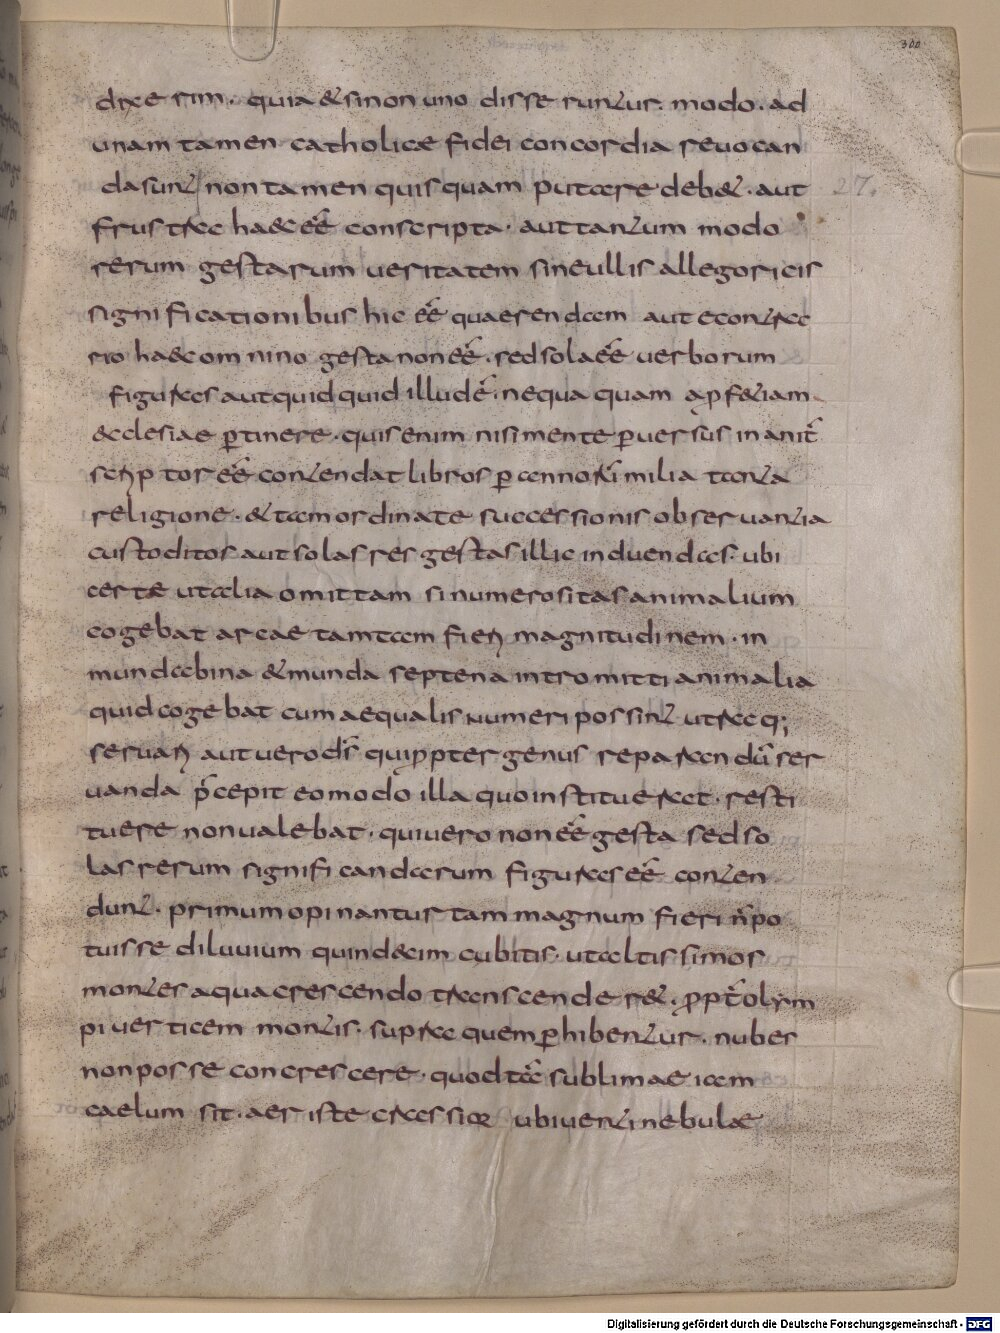 300
dixerim. quia & si non uno disseruntur. modo. ad
unam tamen catholicæ fidei concordia revocan
da sunt/ non tamen quisquam putare deb&. aut 27.
frustra haec eē conscripta. aut tantum modo
rerum gestarum veritatem sine ullis allegoricis
significationibus hic eē quaerendam aut econtra
rio haec omnino gesta non eē. sed sola eē verborum
figuras aut quidquid illud ē. nequaquam a ꝓf&iam
&cclesiae ꝑtinere. quis enim nisi mente ꝑversus inanit̄
scriptor eē contendat libros ꝑ annorū milia tanta
religione. & tam ordinate successionis observantia
custoditos aut solas res gestas illic induendas. ubi
certe ut alia omittam si numerositas animalium
cogebat arcae tamtam fieri magnitudinem. in
munda bina & munda septena intromitti animalia
quid cogebat cum aequalis numeri possint utraq;
servari aut vero dr̄ qui ꝓpter genus reparandū ser
vanda p̄cepit eo modo illa quo instituerat. resti
tuere non valebat. qui vero non eē gesta sed so
las rerum significandarum figuras eē conten
dunt. primum opinantur tam magnum fieri n̄ po
tuisse diluvium quindecim cubitis. ut altissimos
montes aqua crescendo transcender&. ꝓpt̄ olym
pi verticem montis. supra quem ꝑhibentur. nuber
non posse concrescere. quod tā sublimae iam
caelum sit. aer iste crassior ubi venti nebulæ
Digitalisierung gefördert durch die Deutsche Forschungsgemeinschaft - DFG